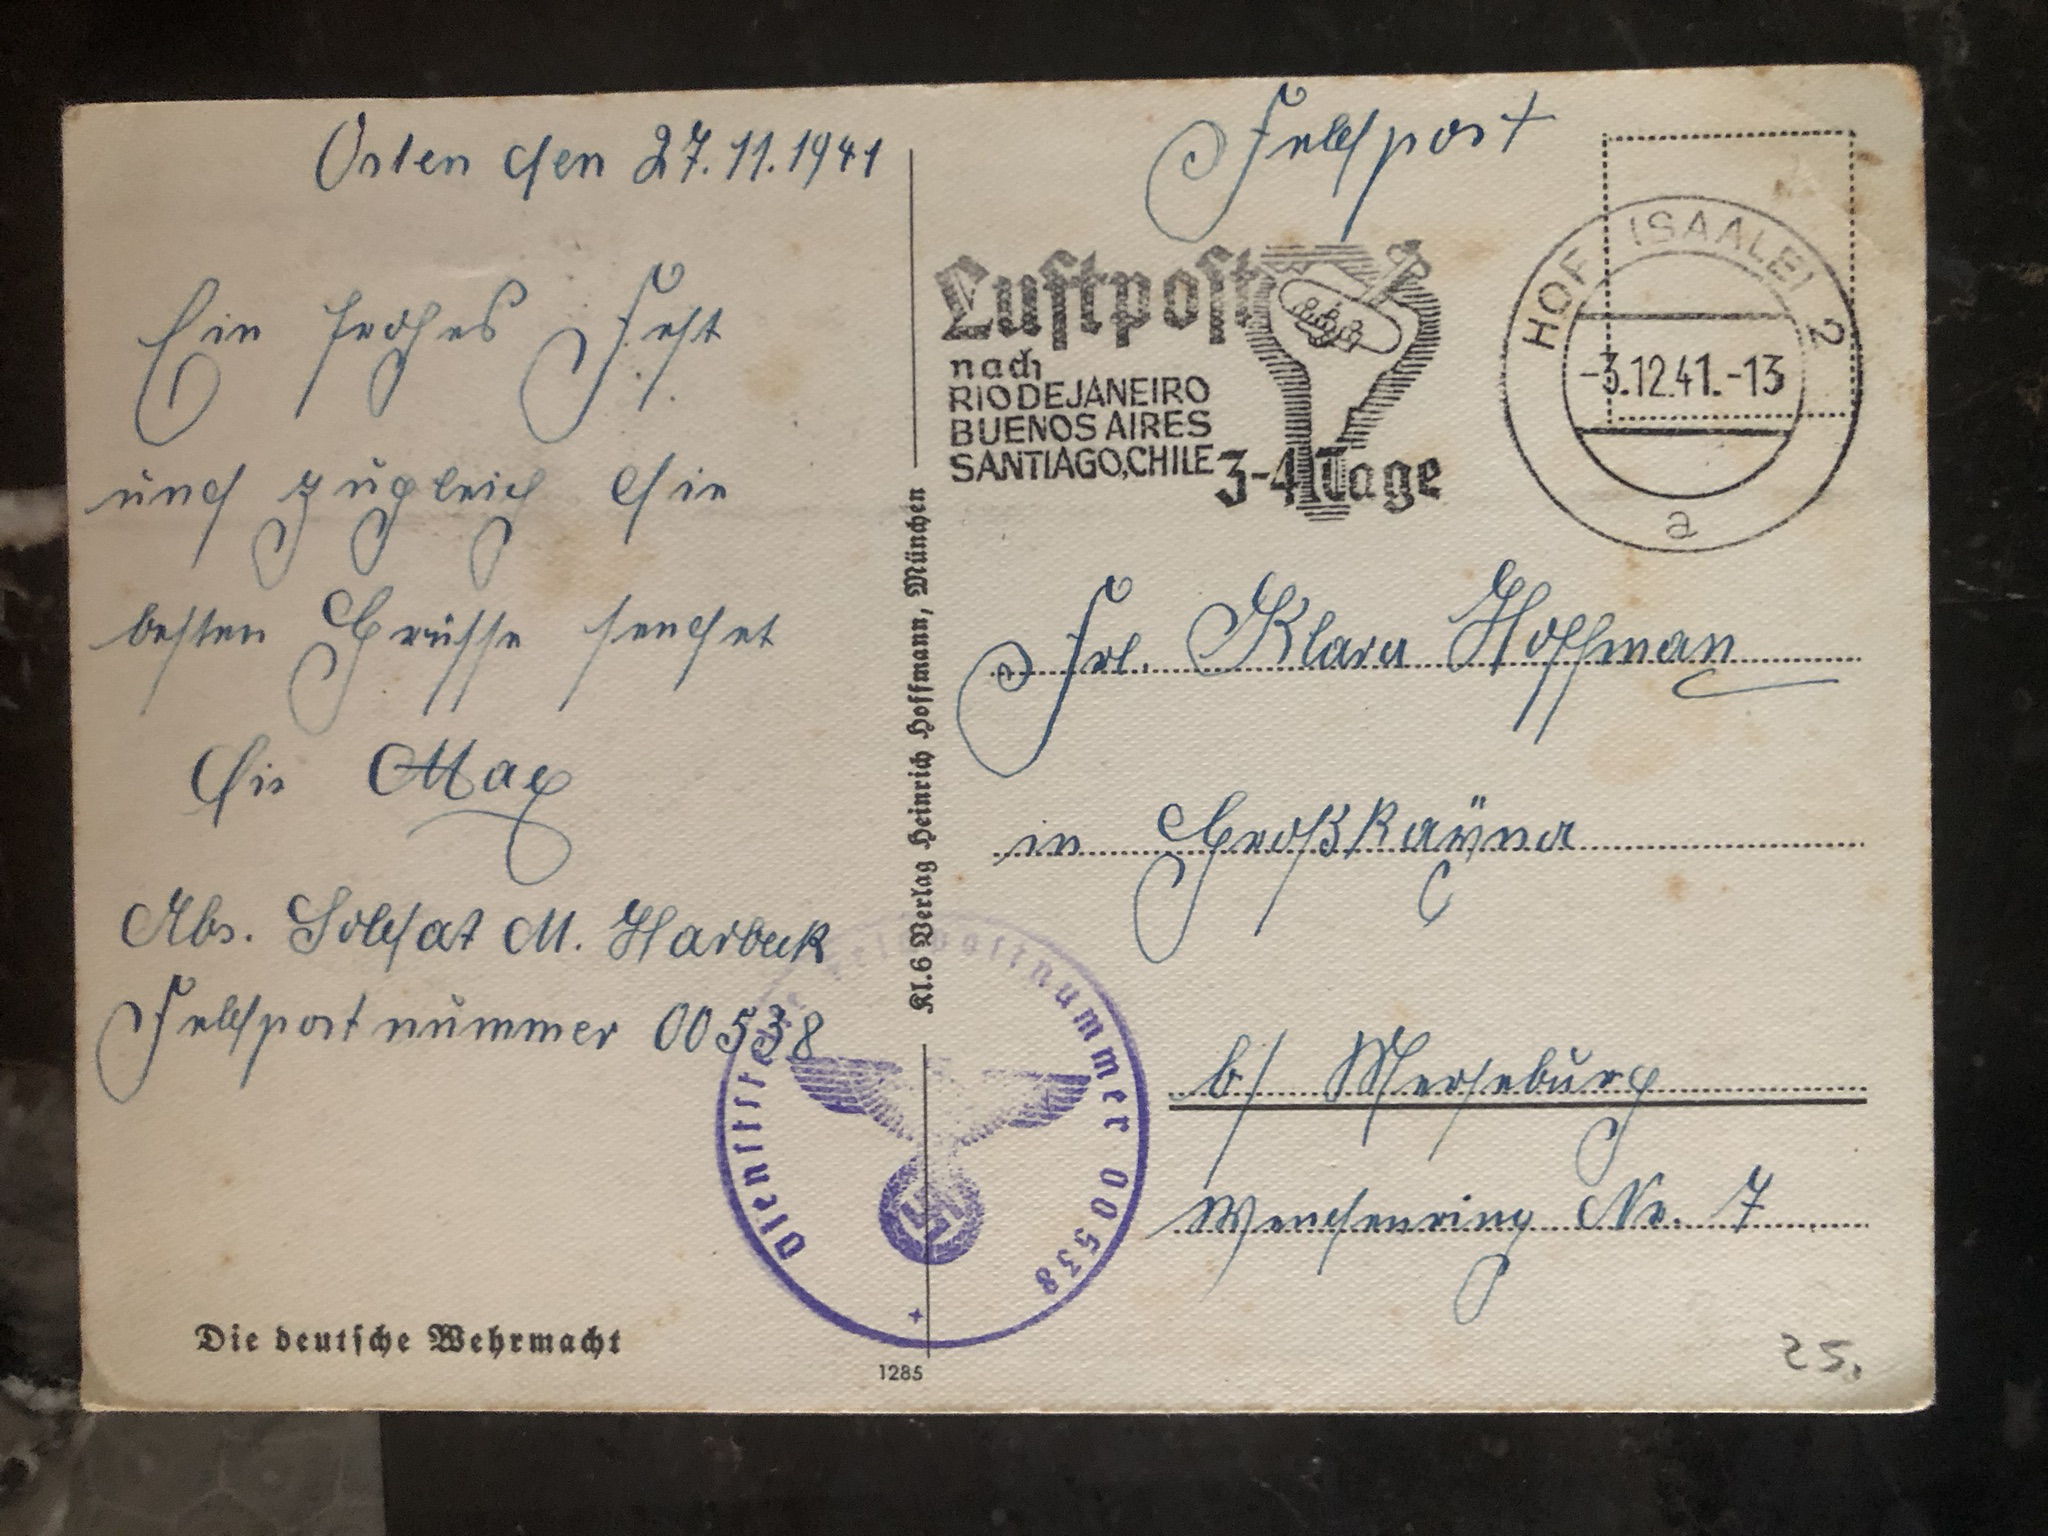 Osten den 27.11.1941
Ein frohes Fest
und zugleich die
besten Grüsse sendet
dir Max
Abs. Soldat M. Harbeck
Feldpostnummer 00538
Die deutsche Wehrmacht
Kl.6 Verlag Heinrich Hoffmann, München
1285
Feldpost
Luftpost
nach
RIO DE JANEIRO
BUENOS AIRES
SANTIAGO, CHILE 3-4 Tage
HOF (SAALE) 2
-3.12.41.-13
a
Frl. Klara Hoffman
in Großkaÿna
b/ Merseburg
Wendenring Nr. 7
Dienststelle Feldpostnummer 00538
25.